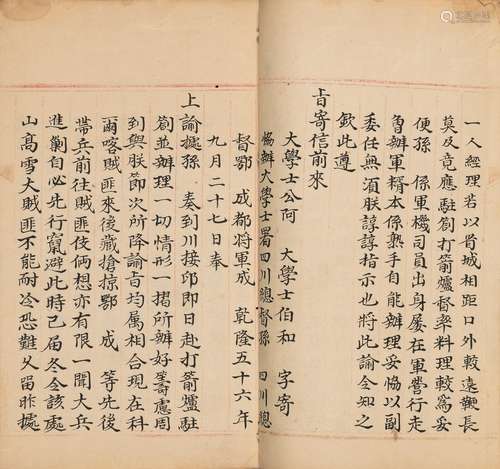 一人經理若以省城相距口外較遠鞭長
莫及竟應駐劄打箭爐督率料理較為妥
便孫 係軍機司員出身屢在軍營行走
魯辦軍糈本係熟手自能辦理妥恊以副
委任無湏朕諄諄指示也將此諭令知之
欽此遵
㫖寄信前來
大學士公阿 大學士伯和 字寄
恊辦大學士署四川總督孫 四川總
督鄂 成都將軍成 乾隆五十六年
九月二十七奉
上諭據孫 奏到川接卬即日赴打箭爐駐
劄並辦理一切情形一摺所辦好籌慮周
到與朕節次所降諭㫖均属相合現在科
爾喀賊匪來後藏搶掠鄂 成 等先後
帶兵前往賊匪伎俩想亦有限一聞大兵
進勦自必先行竄避此時已届冬令該處
山高雪大賊匪不能耐冷恐難久留昨據